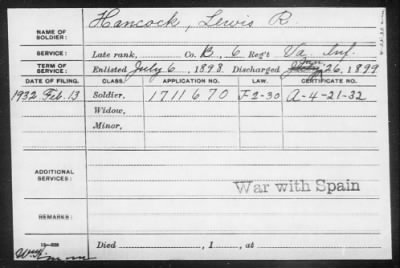 NAME OF SOLDIER: Hancock, Lewis R.
SERVICE: Late rank, Co. B, 6 Reg't Va. Inf.
TERM OF SERVICE: Enlisted July 6, 1898 Discharged Jan 26, 1899
DATE OF FILING. CLASS. APPLICATION NO. LAW. CERTIFICATE NO.
1932 Feb. 13 Soldier, 1711670 J-2-30 A-4-21-32
Widow,
Minor,
ADDITIONAL SERVICES:
War with Spain
REMARKS:
Died , 1 , at